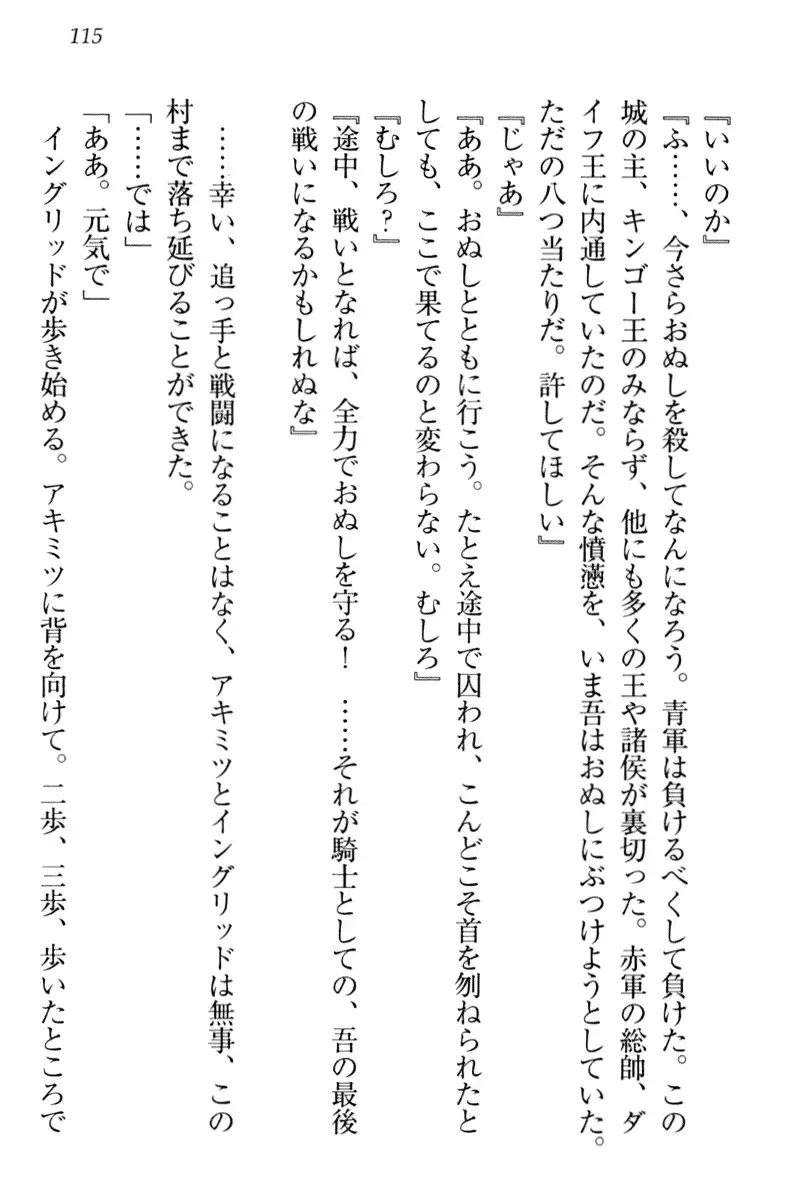 115
『いいのか』
『ふ……、今さらおぬしを殺してなんになろう。青軍は負けるべくして負けた。この
城の主、キンゴー王のみならず、他にも多くの王や諸侯が裏切った。赤軍の総帥、ダ
イフ王に内通していたのだ。そんな憤懣を、いま吾はおぬしにぶつけようとしていた。
ただの八つ当たりだ。許してほしい』
『じゃあ』
『ああ。おぬしとともに行こう。たとえ途中で囚われ、こんどこそ首を刎ねられたと
しても、ここで果てるのと変わらない。むしろ』
『むしろ？』
『途中、戦いとなれば、全力でおぬしを守る！　……それが騎士としての、吾の最後
の戦いになるかもしれぬな』
……幸い、追っ手と戦闘になることはなく、アキミツとイングリッドは無事、この
村まで落ち延びることができた。
「……では」
「ああ。元気で」
イングリッドが歩き始める。アキミツに背を向けて。二歩、三歩、歩いたところで